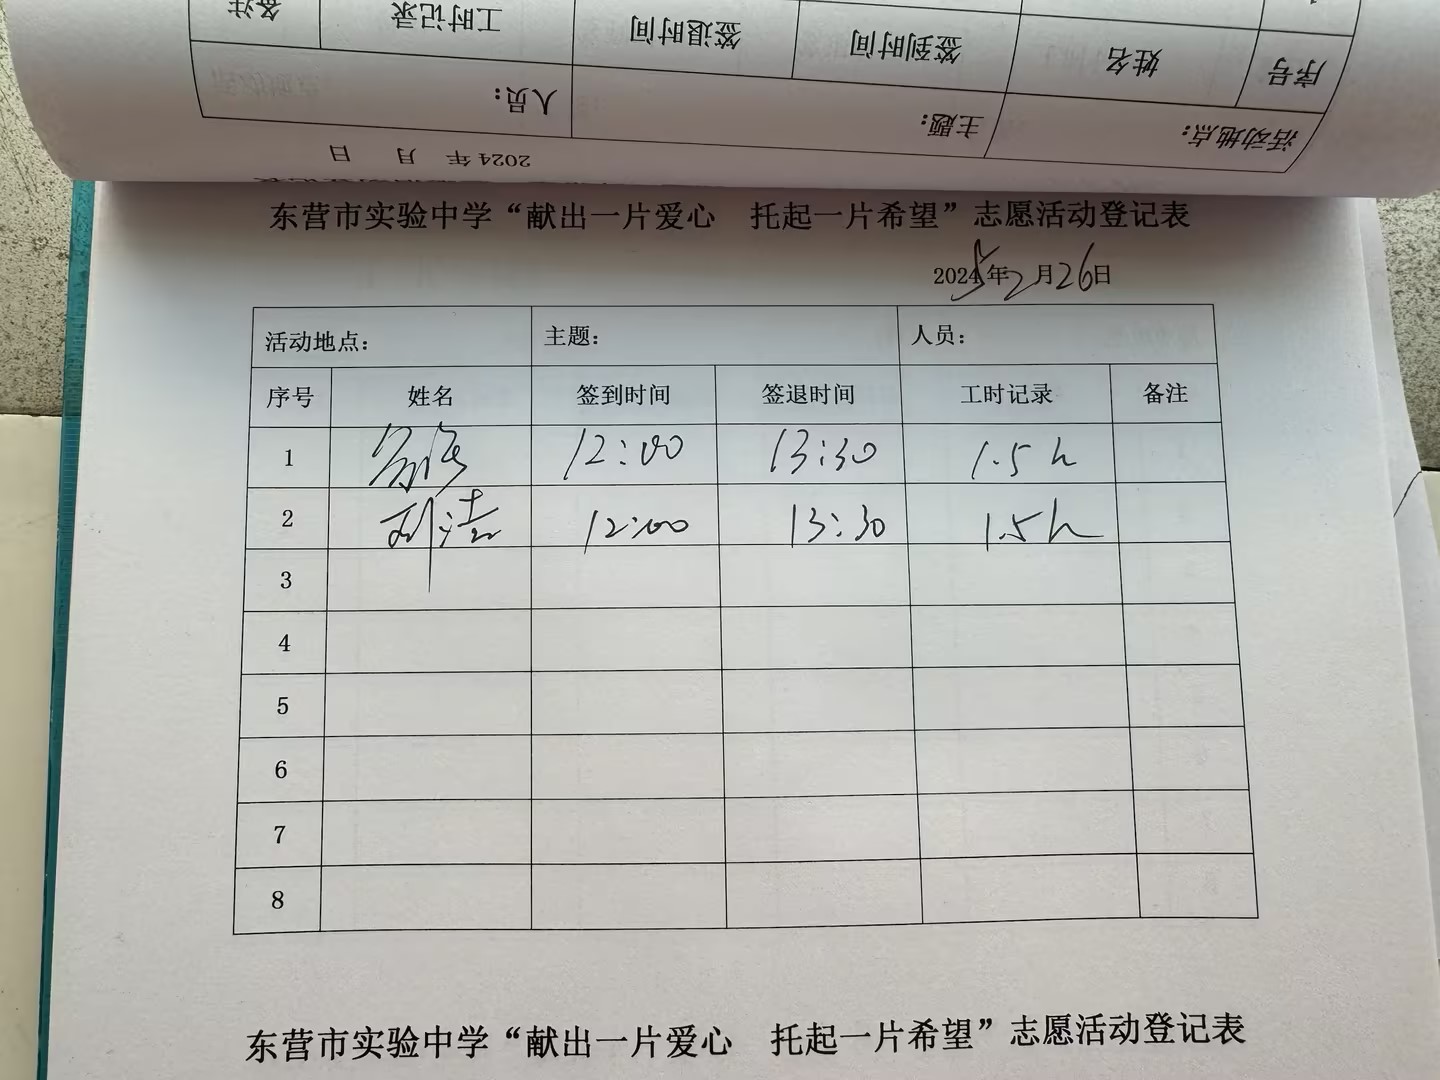 备注 工时记录 签退时间 签到时间 姓名 序号
人员： 主题： 活动地点：
2024年 月 日
东营市实验中学“献出一片爱心 托起一片希望”志愿活动登记表
2025年2月26日
活动地点： 主题： 人员：
序号 姓名 签到时间 签退时间 工时记录 备注
1 12:00 13:30 1.5h
2 12:00 13:30 1.5h
3
4
5
6
7
8
东营市实验中学“献出一片爱心 托起一片希望”志愿活动登记表